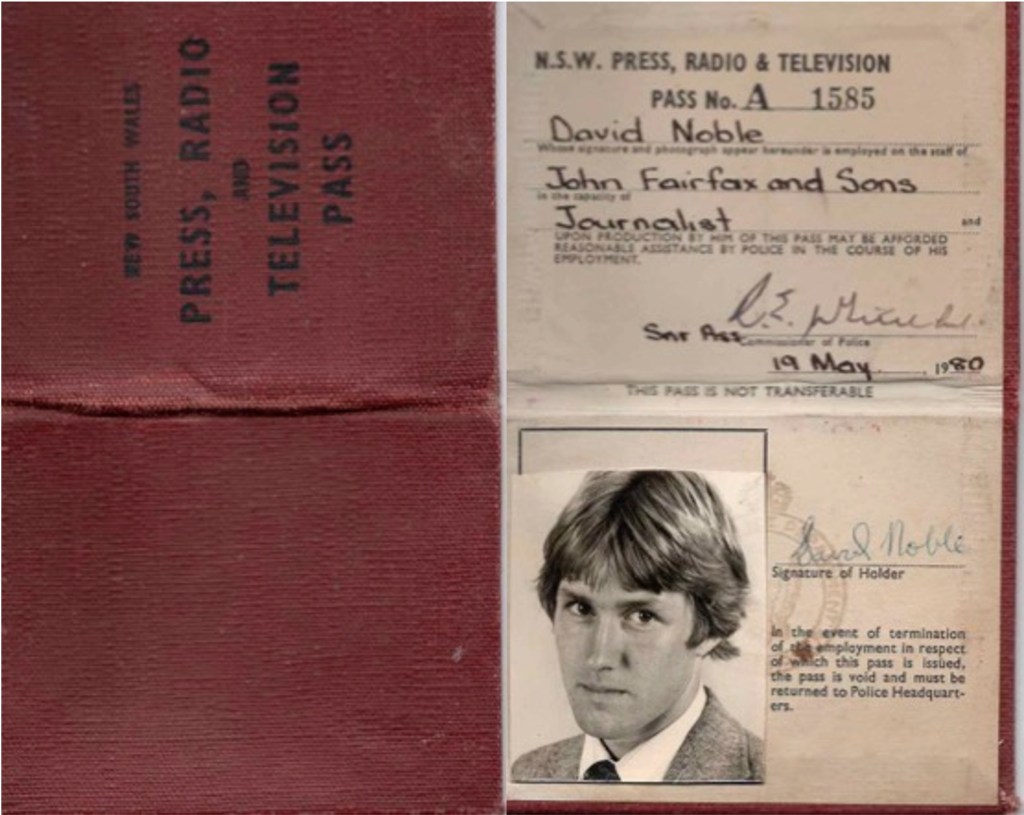 NEW SOUTH WALES
PRESS, RADIO
AND
TELEVISION
PASS
N.S.W. PRESS, RADIO & TELEVISION
PASS No. A 1585
David Noble
Whose signature and photograph appear hereunder is employed on the staff of
John Fairfax and Sons
in the capacity of
Journalist and
UPON PRODUCTION BY HIM OF THIS PASS MAY BE AFFORDED
REASONABLE ASSISTANCE BY POLICE IN THE COURSE OF HIS
EMPLOYMENT.
R.E.
Snr Ass Commissioner of Police
19 May 1980
THIS PASS IS NOT TRANSFERABLE
David Noble
Signature of Holder
In the event of termination
of the employment in respect
of which this pass is issued,
the pass is void and must be
returned to Police Headquart-
ers.